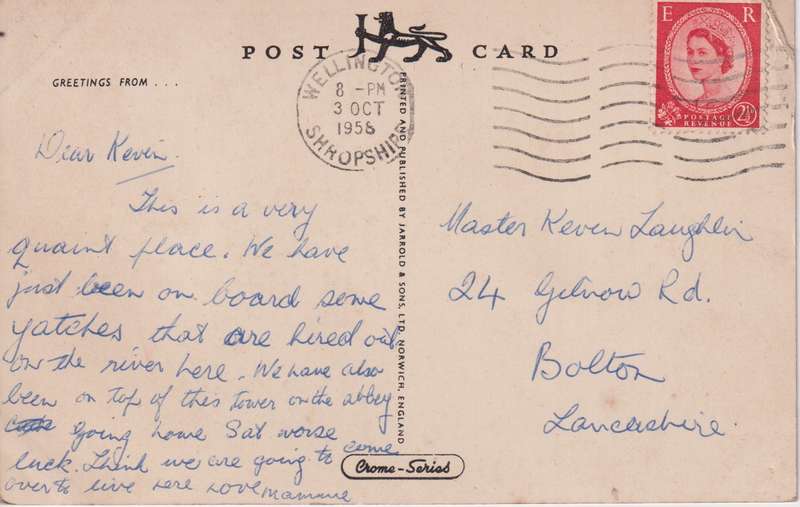 POST CARD
GREETINGS FROM . . .
WELLINGTON
8 - PM
3 OCT
1958
SHROPSHIRE
E R
POSTAGE
REVENUE
2½D
Dear Kevin.
This is a very
quaint place. We have
just been on board some
yatches that are hired out
on the river here. We have also
been on top of this tower on the abbey
going home Sat worse
luck. Think we are going to come
over to live here Love Mammie
PRINTED AND PUBLISHED BY JARROLD & SONS, LTD. NORWICH, ENGLAND
Crome-Series
Master Kevin Laughlin
24 Gilnow Rd.
Bolton
Lancashire.